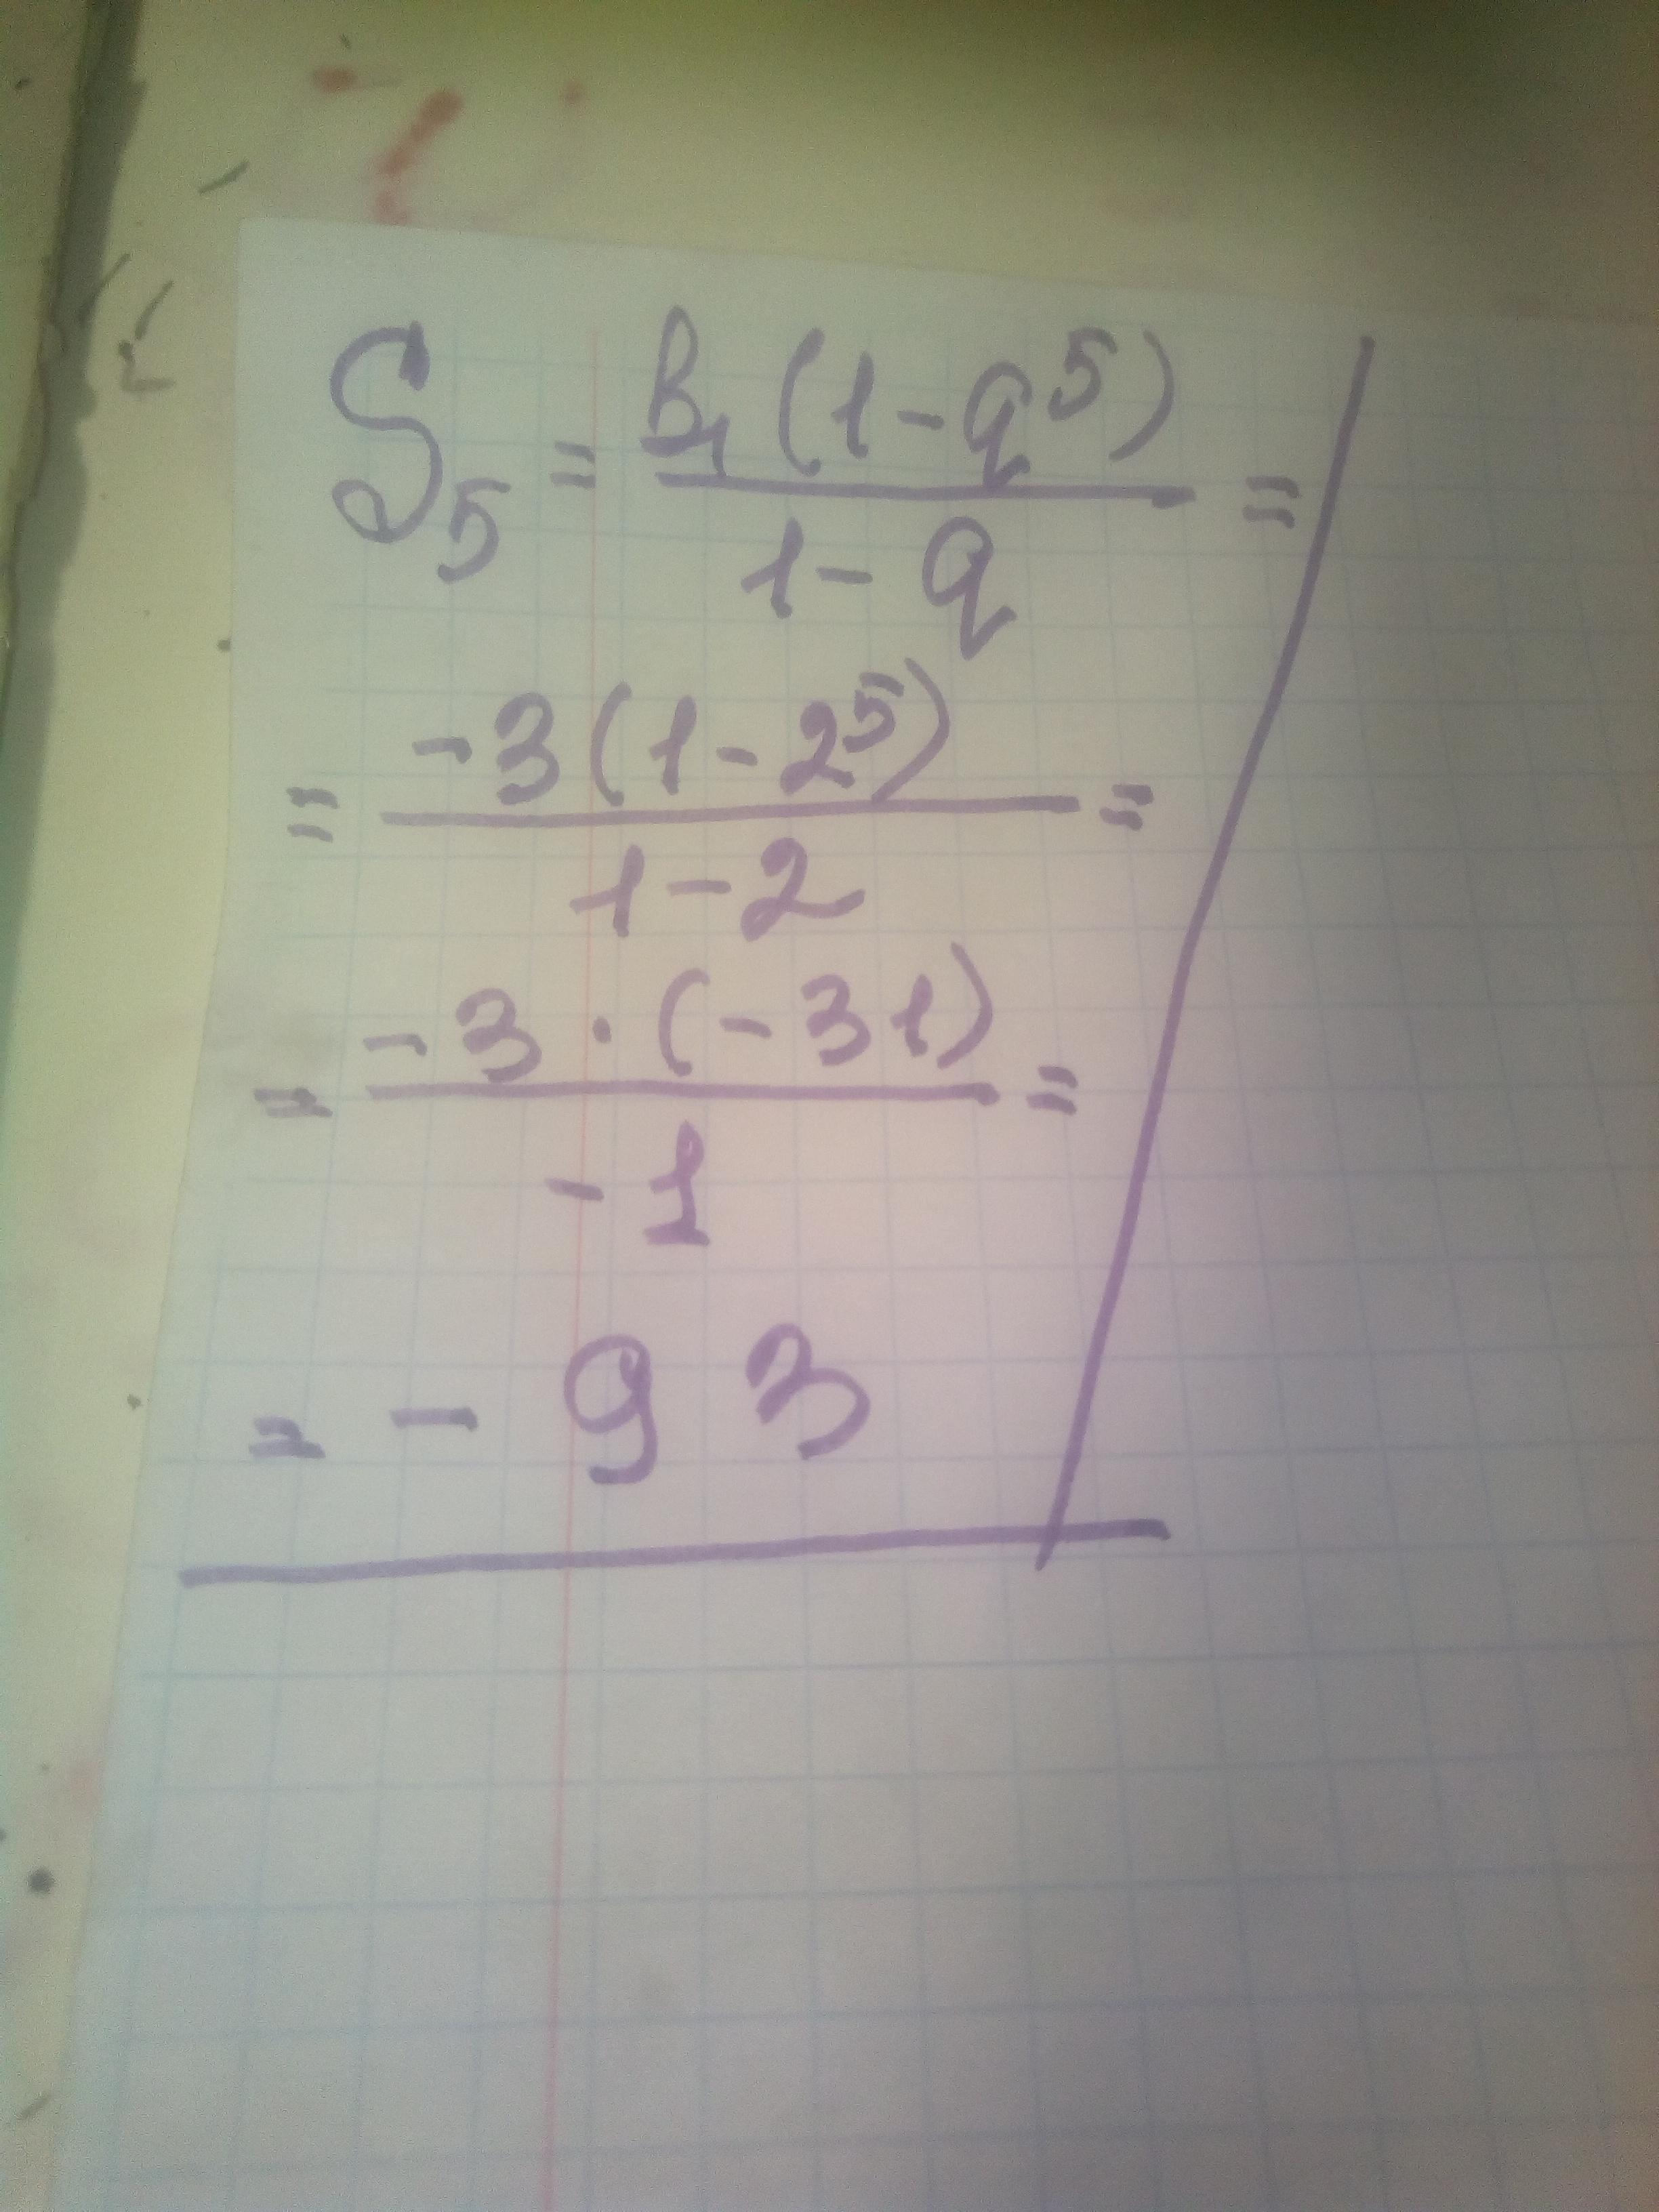 S₅ = B₁(1-q⁵)/1-q =
= -3(1-2⁵)/1-2 =
= -3·(-31)/-1 =
= -93